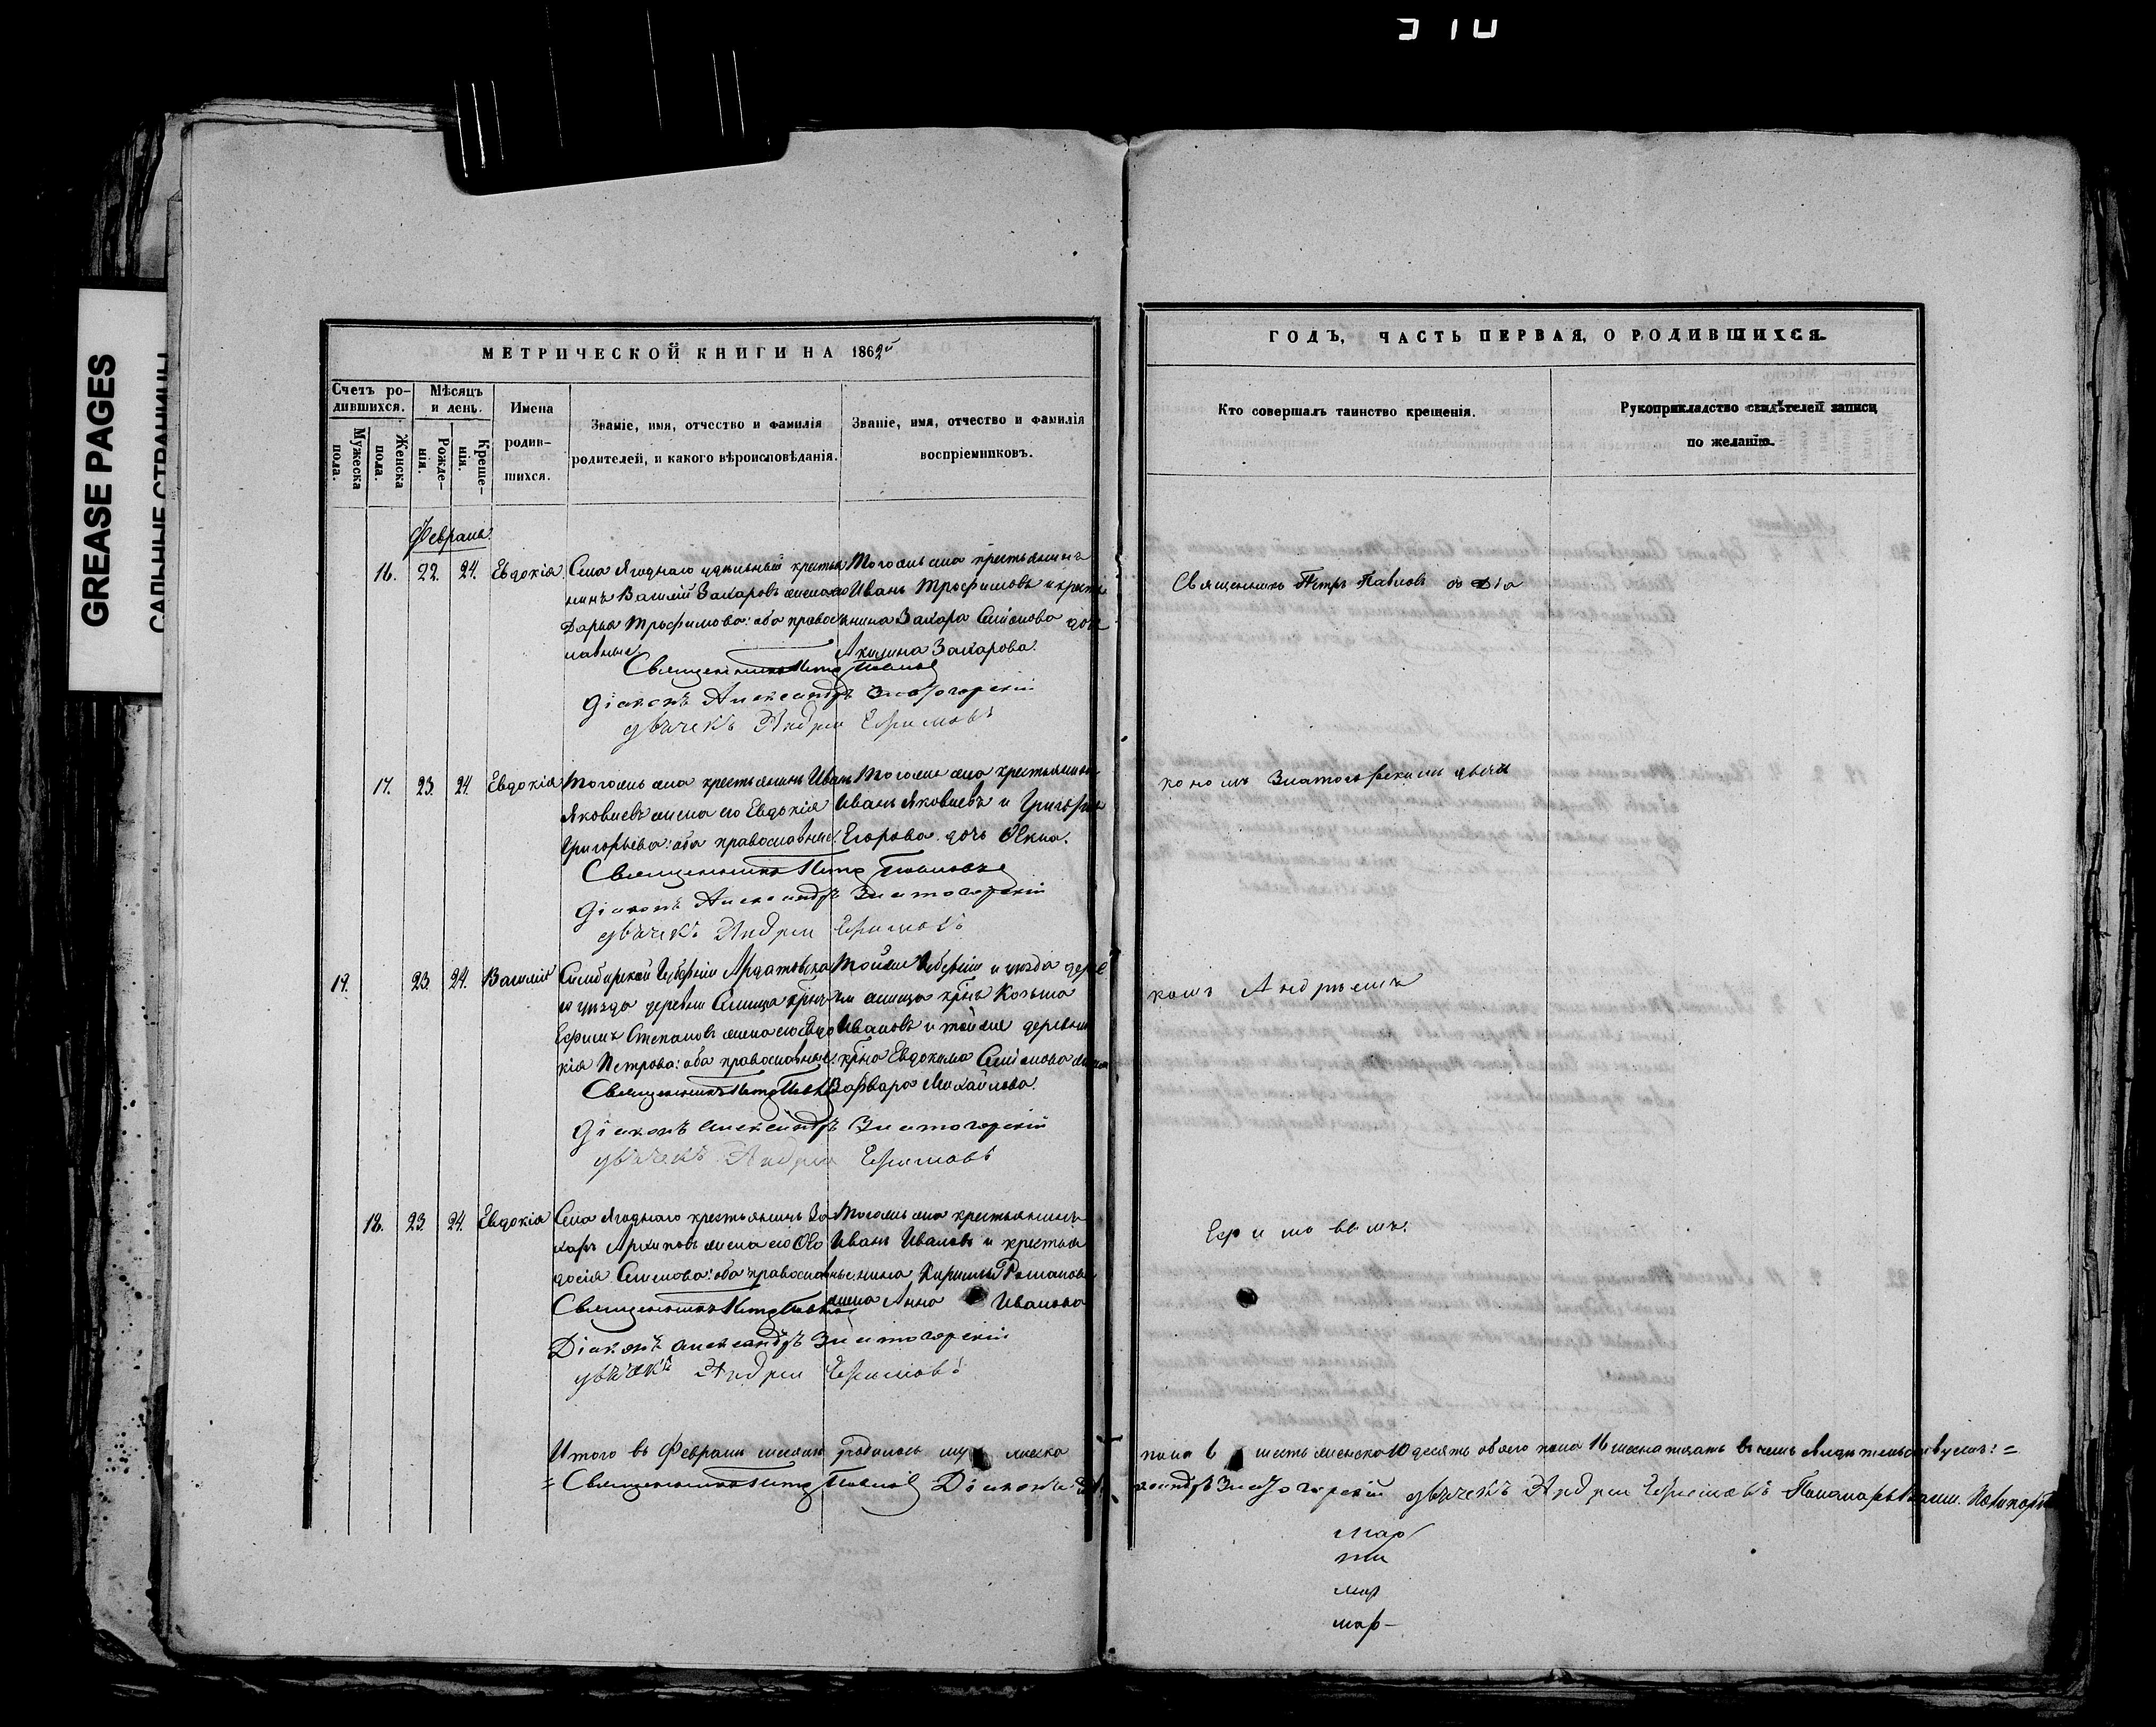 310
GREASE PAGES
САЛЬНЫЕ СТРАНИЦЫ
МЕТРИЧЕСКОЙ КНИГИ НА 1862й
Счетъ ро-
дившихся.
Мѣсяцъ
и день.
Имена
родив-
шихся.
Званіе, имя, отчество и фамилія
родителей, и какого вѣроисповѣданія.
Званіе, имя, отчество и фамилія
воспріемниковъ.
Мужеска
пола.
Женска
пола.
Рожде-
нія.
Креще-
нія.
Февраль
16. 22. 24. Евдокія
Села Ягоднаго удѣльный крестья
нинъ Василій Захаровъ жена его
Дарья Трофимова: оба правос
лавные
Тогожъ села крестьянинъ
Иванъ Трофимовъ и кресть
янина Захара Семенова дочь
Акилина Захарова.
Священникъ Петръ Павловъ
Діаконъ Александръ Златогорскій
дьячекъ Андрей Ефимовъ
17. 23. 24. Евдокія
Тогожъ села крестьянинъ Иванъ
Яковлевъ жена его Евдокія
Григорьева: оба православные.
Тогоже села крестьянинъ
Иванъ Яковлевъ и Григорья
Егорова дочь Ѳекла.
Священникъ Петръ Павловъ
Діаконъ Александръ Златогорскій
дьячекъ Андрей Ефимовъ
19. 23. 24. Василій
Симбирской Губерніи Ардатовска
го уѣзда деревни
Ефимъ Степановъ жена его Евдо
кія Петрова: оба православные.
Тойже Губерніи и уѣзда дерев
Козьма
Ивановъ и тойже деревни
Евдокима Семенова жена
Варвара Михайлова.
Священникъ Петръ Павловъ
Діаконъ Александръ Златогорскій
дьячекъ Андрей Ефимовъ
18. 23 24. Евдокія
Села Ягоднаго крестьянинъ За
харъ Архиповъ жена его Ѳео
досія Семенова: оба православные
Тогожъ села крестьянинъ
Иванъ Ивановъ и крестья
нина Кирилы Романова
жена Анна Иванова
Священникъ Петръ Павловъ
Діаконъ Александръ Златогорскій
дьячекъ Андрей Ефимовъ
Итого въ Февралѣ месяцѣ родилось муж еска
= Священникъ Петръ Павловъ Діаконъ
ГОДЪ, ЧАСТЬ ПЕРВАЯ, О РОДИВШИХСЯ.
Кто совершалъ таинство крещенія.
Рукоприкладство свидѣтелей записи
по желанію.
Священникъ Петръ Павловъ съ Діа
кономъ Златогорскимъ дьяч
комъ Андреемъ
Ефимовымъ.
пола 6 шесть женска 10 десять обоего пола 16 шестнатцать въ чемъ свидѣтельствуемъ: =
ксандръ Златогорскій дьячекъ Андрей Ефимовъ Пономарь
мар
мар
мар-